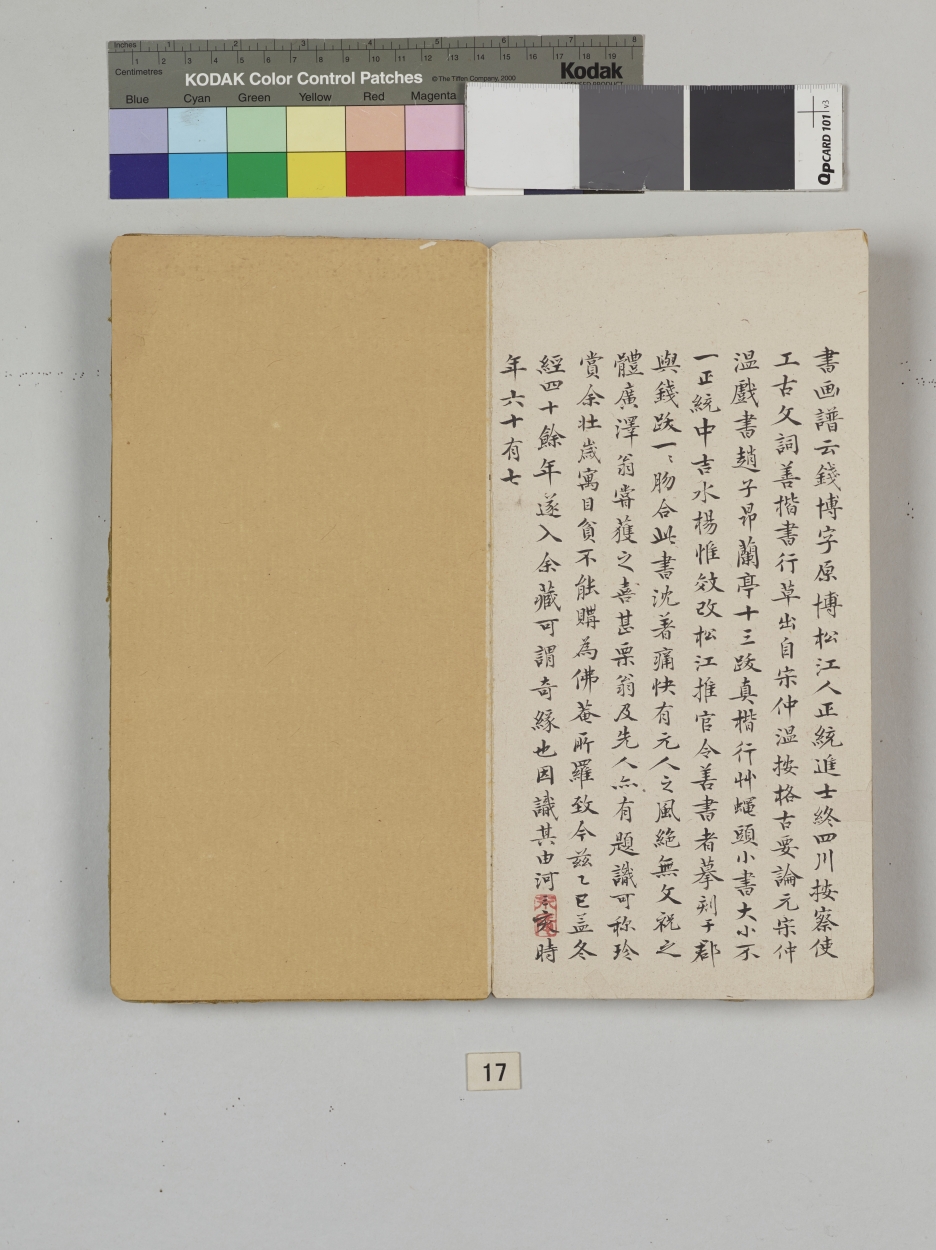 Inches 1 2 3 4 5 6 7 8
Centimetres 1 2 3 4 5 6 7 8 9 10 11 12 13 14 15 16 17 18 19
KODAK Color Control Patches © The Tiffen Company, 2000 Kodak
LICENSED PRODUCT
Blue Cyan Green Yellow Red Magenta
QPCARD 101 v3
書画譜云錢博字原博松江人正統進士終四川按察使
工古文詞善楷書行草出自宋仲温按格古要論元宋仲
温戲書趙子昂蘭亭十三跋真楷行艸蠅頭小書大小不
一正統中吉水楊惟效改松江推官令善書者摹刻于郡
與錢跋一〻脗合此書沈著痛快有元人之風絶無文祝之
體廣澤翁嘗獲之喜甚栗翁及先人亦有題識可称珍
賞余壮歳寓目貧不能購為佛菴所羅致今茲乙巳盖冬
經四十餘年遂入余藏可謂奇緣也因識其由河三亥時
年六十有七
17